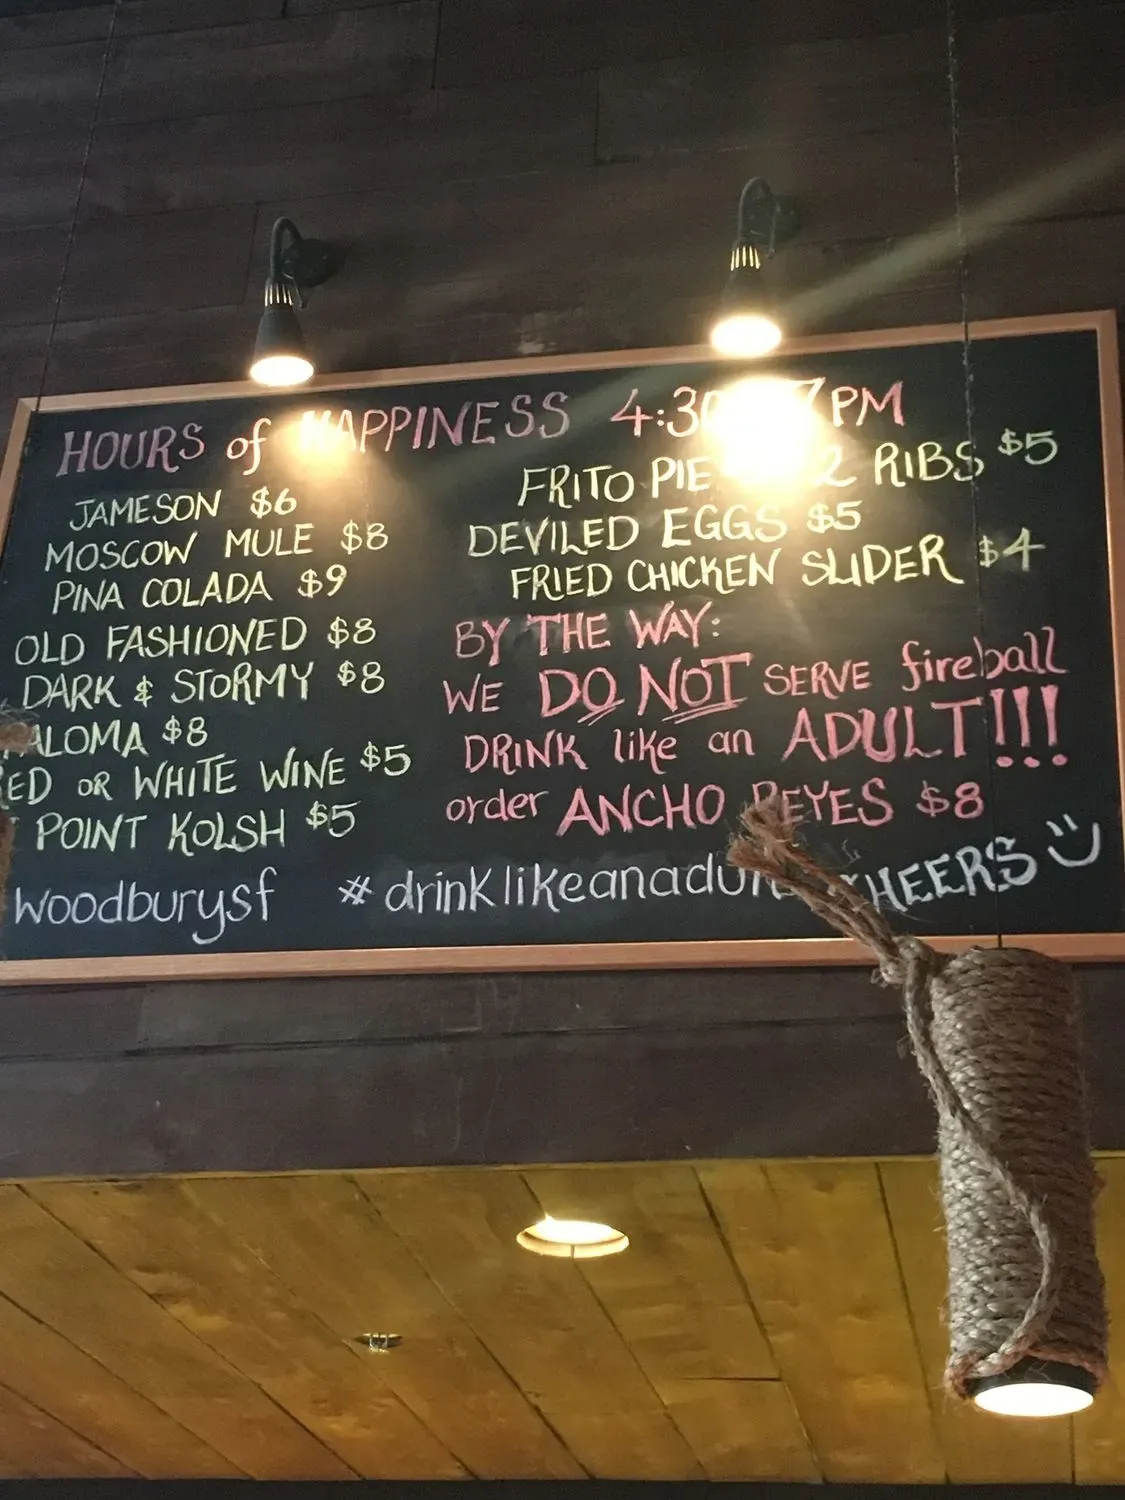 HOURS of HAPPINESS 4:30 7PM
JAMESON $6
MOSCOW MULE $8
PINA COLADA $9
OLD FASHIONED $8
DARK & STORMY $8
ALOMA $8
RED OR WHITE WINE $5
POINT KOLSH $5
FRITO PIE 2 RIBS $5
DEVILED EGGS $5
FRIED CHICKEN SLIDER $4
BY THE WAY:
WE DO NOT SERVE fireball
DRINK like an ADULT!!!
order ANCHO REYES $8
woodburysf #drinklikeanadult CHEERS